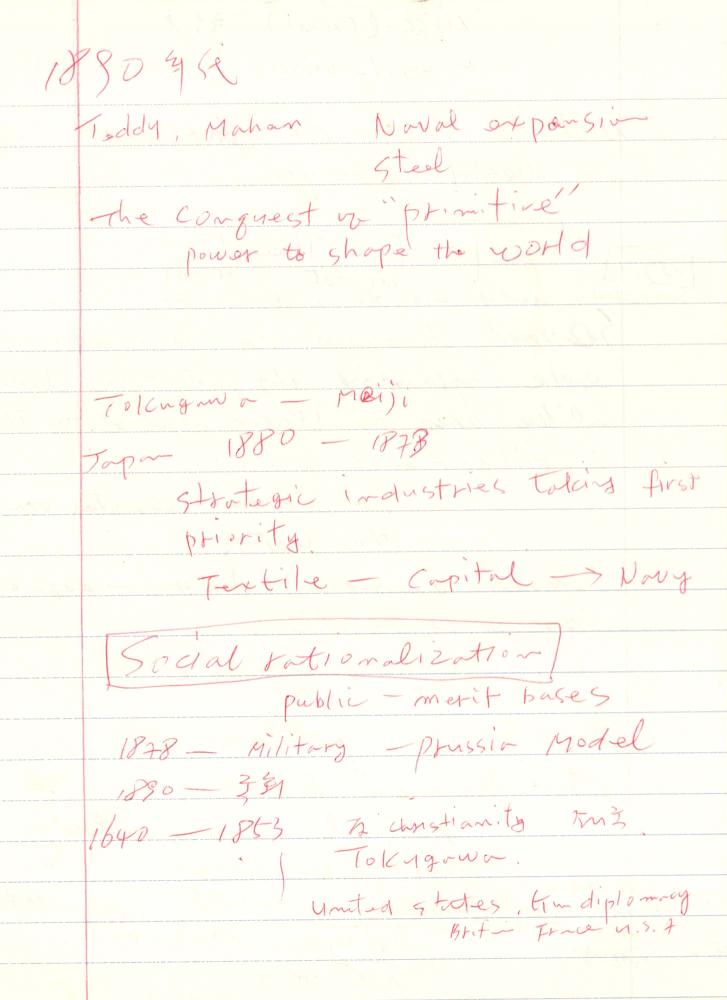 1890 年代
Teddy, Mahan Naval expansion
steel
The conquest of "primitive"
power to shape the world
Tokugawa — Meiji
Japan 1880 — 1878
strategic industries taking first
priority.
Textile — Capital → Navy
Social rationalization
public — merit bases
1878 — Military — prussia Model
1890 — 국회
1640 — 1853 christianity
Tokugawa.
United states, diplomacy
Britain France U.S.A